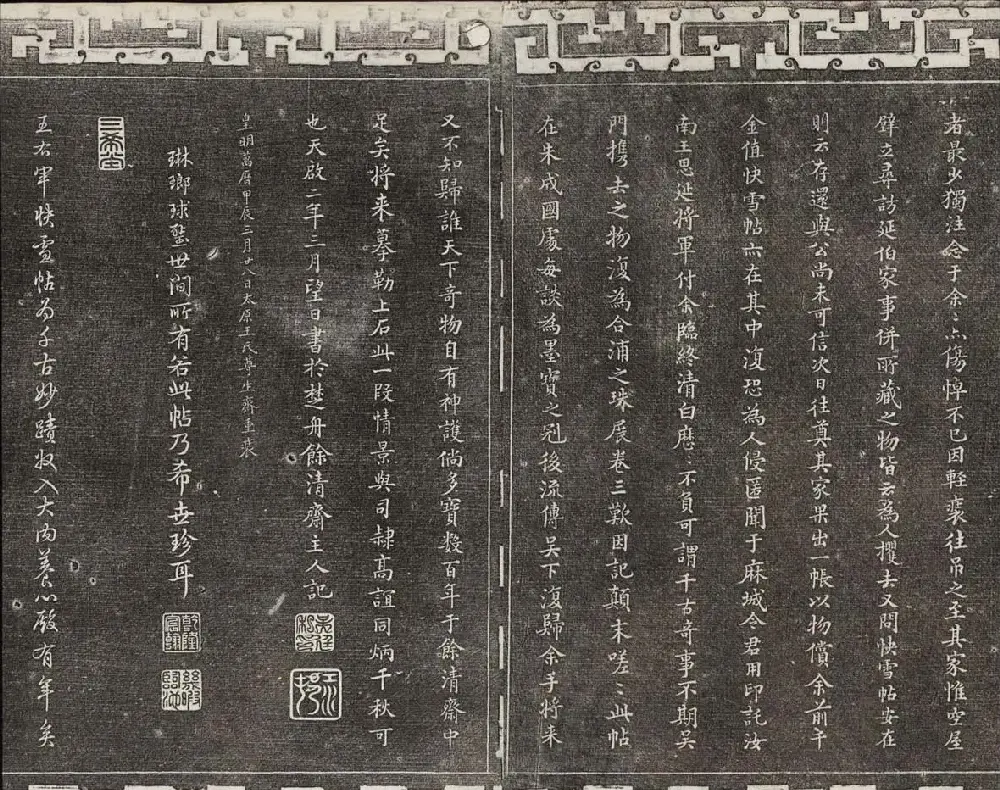 者最少獨注念于余〻亦傷悼不已因輕裘往吊之至其家惟空屋
壁立尋訪延伯家事併所藏之物皆云為人攫去又問快雪帖安在
明云存還與公尚未可信次日往奠其家果出一帳以物償余前千
金值快雪帖亦在其中復恐為人侵匿聞于麻城令君用印託汝
南王思延將軍付余臨終清白歷〻不負可謂千古奇事不期吳
門攜去之物復為合浦之珠展卷三歎因記顛末嗟〻此帖
在朱成國處每談為墨寶之冠後流傳吳下復歸余手將來
又不知歸誰天下奇物自有神護倘多寶數百年于餘清齋中
足矣將来摹勒上石此一段情景與司隸高誼同炳千秋可
也天啟二年三月望日書於楚舟餘清齋主人記
吳廷
皇明萬曆甲辰三月廿八日太原王氏尊生齋重裝
琳瑯球璧世間所有若此帖乃希世珍耳
乾隆宸翰
幾暇臨池
三希堂
王右軍快雪帖為千古妙蹟收入大內養心殿有年矣